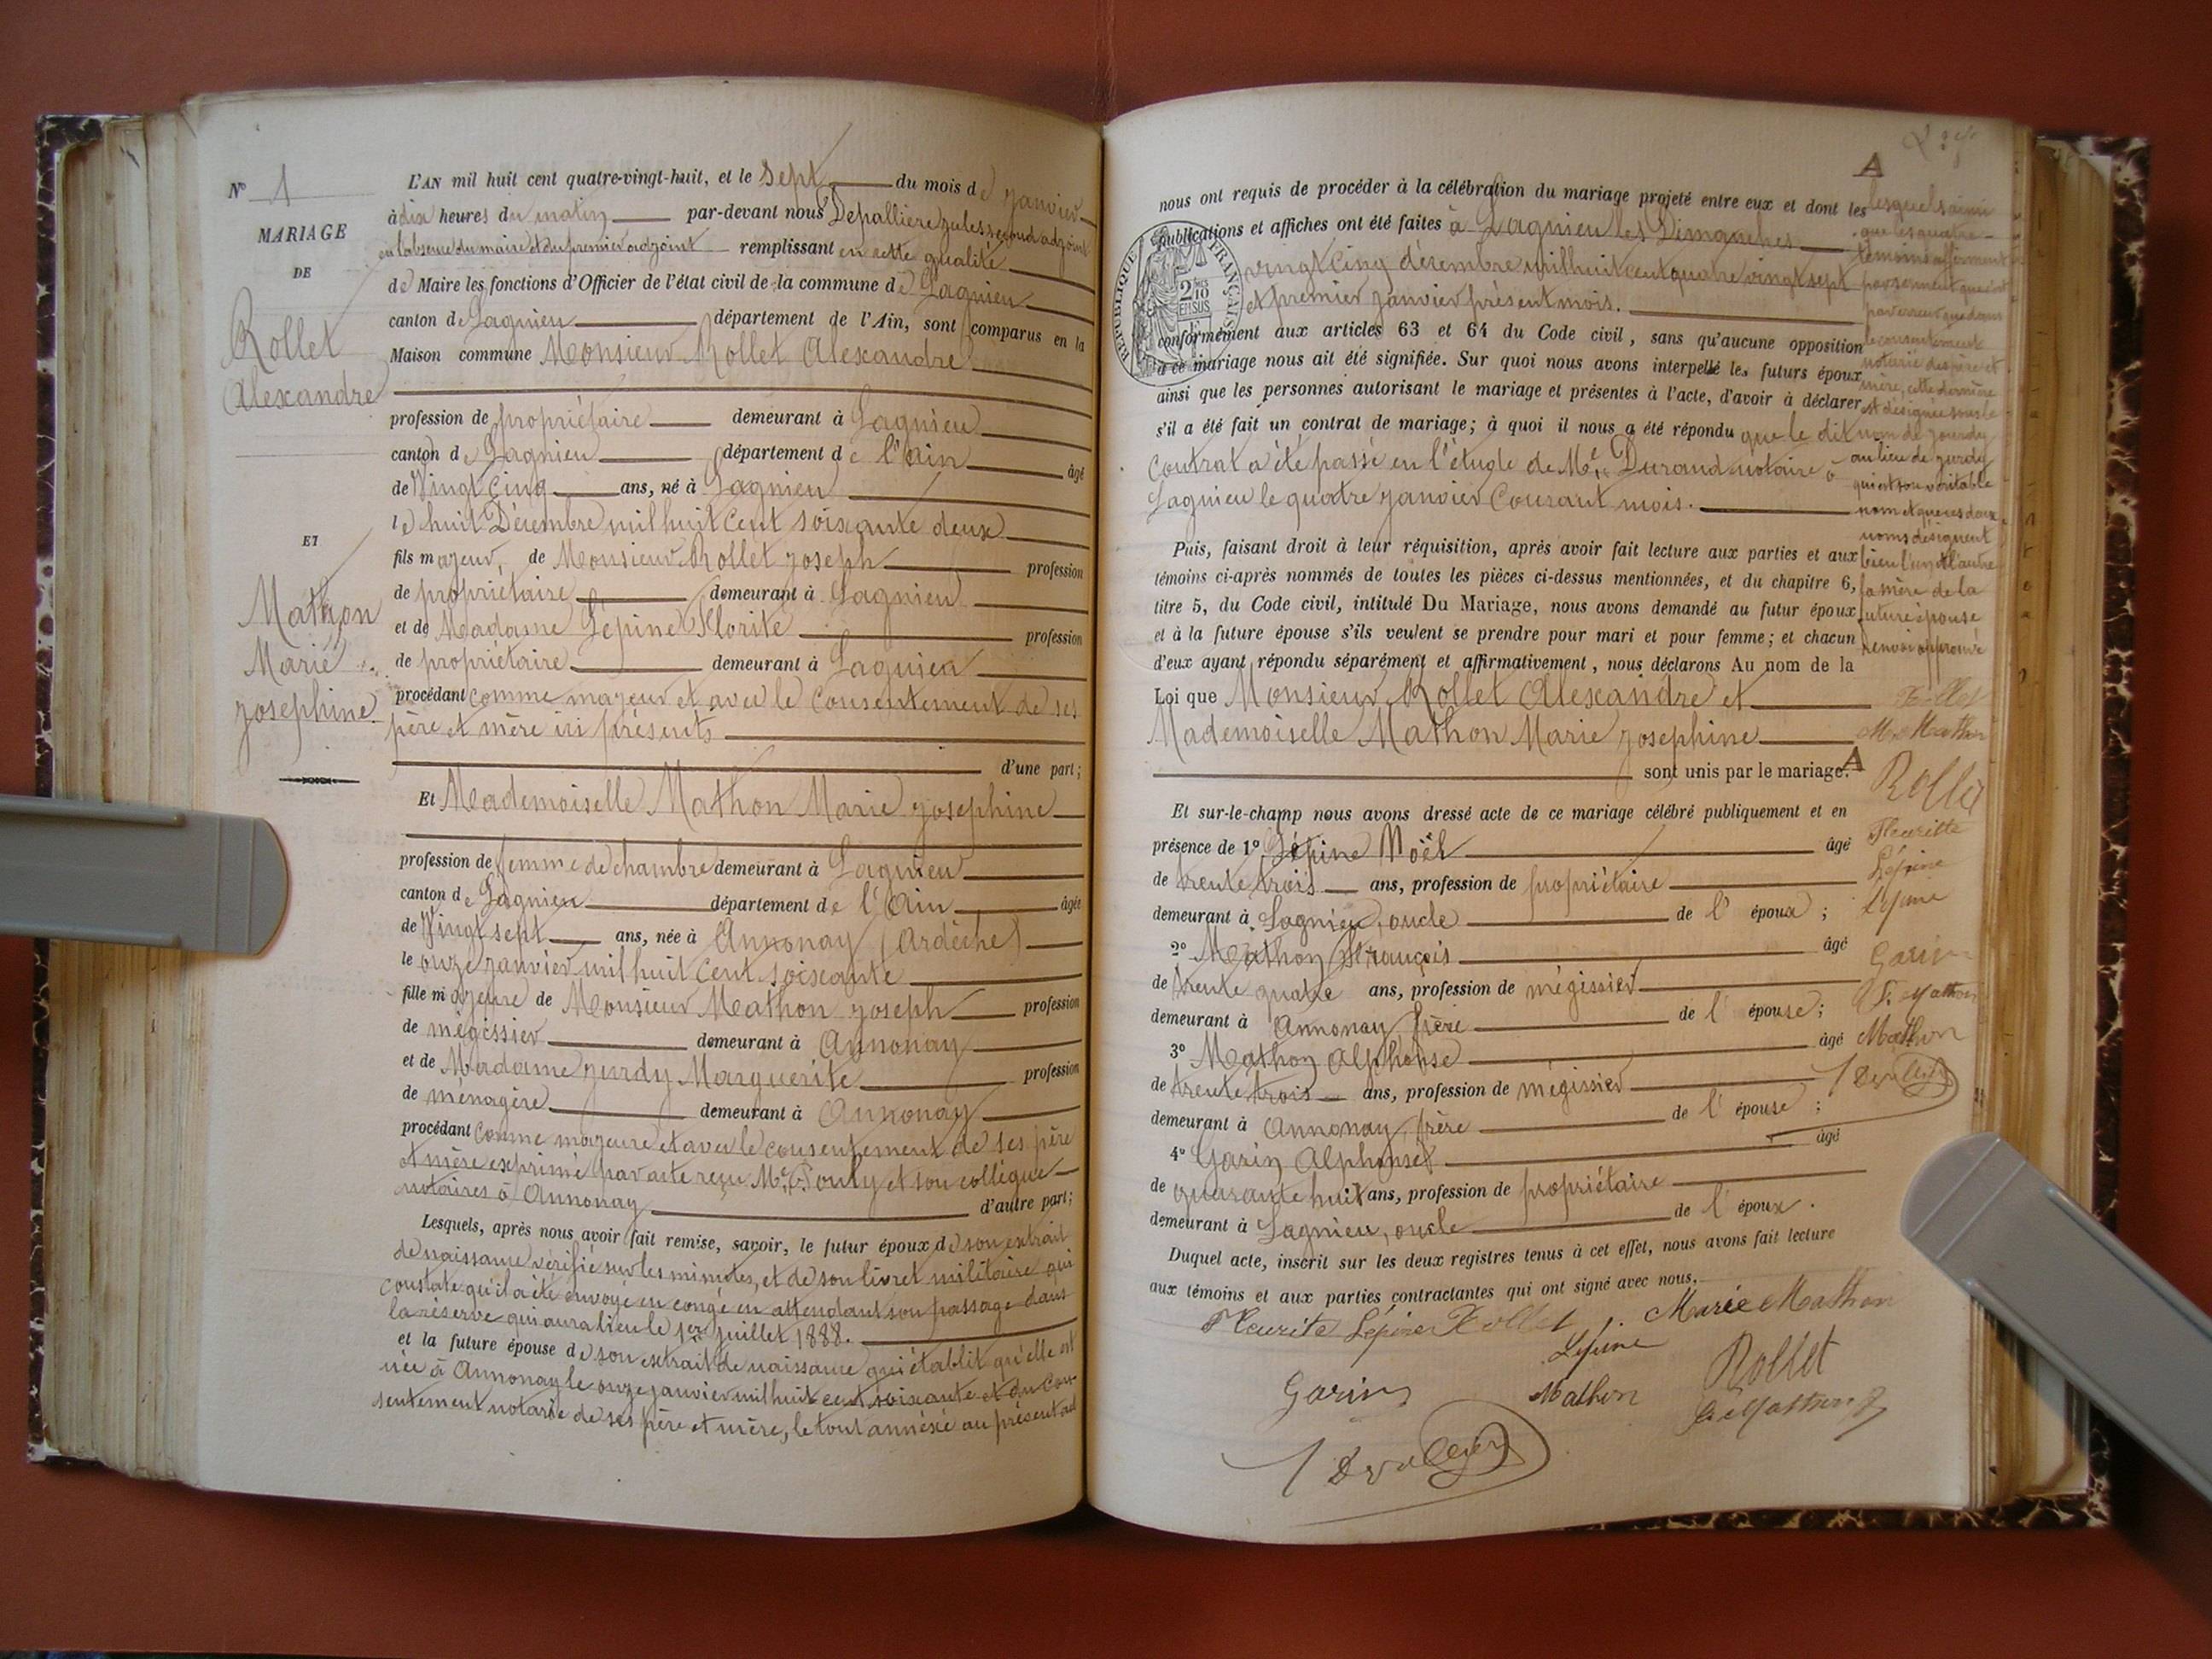 N° 1
MARIAGE
DE
Rollet
Alexandre
ET
Mathon
Marie
Josephine
L'AN mil huit cent quatre-vingt-huit, et le sept du mois de Janvier
à dix heures du matin par-devant nous Depallière Jules second adjoint
en l'absence du maire et du premier adjoint remplissant en cette qualité
de Maire les fonctions d'Officier de l'état civil de la commune de Lagnieu
canton de Lagnieu département de l'Ain, sont comparus en la
Maison commune Monsieur Rollet Alexandre
profession de propriétaire demeurant à Lagnieu
canton de Lagnieu département de l'Ain âgé
de Vingt cinq ans, né à Lagnieu
le huit Décembre mil huit cent soixante deux
fils majeur, de Monsieur Rollet Joseph profession
de propriétaire demeurant à Lagnieu
et de Madame Lépine Florite profession
de propriétaire demeurant à Lagnieu
procédant comme majeur et avec le consentement de ses
père et mère ici présents
d'une part;
Et Mademoiselle Mathon Marie Josephine
profession de femme de chambre demeurant à Lagnieu
canton de Lagnieu département de l'Ain âgée
de Vingt sept ans, née à Annonay (Ardèche)
le onze janvier mil huit cent soixante
fille majeure de Monsieur Mathon Joseph profession
de mégissier demeurant à Annonay
et de Madame Jurdy Marguerite profession
de ménagère demeurant à Annonay
procédant comme majeure et avec le consentement de ses père
et mère exprimé par acte reçu Me Pouly et son collègue
notaires à Annonay d'autre part;
Lesquels, après nous avoir fait remise, savoir, le futur époux de son extrait
de naissance vérifié sur les minutes, et de son livret militaire qui
constate qu'il a été envoyé en congé en attendant son passage dans
la réserve qui aura lieu le 1er juillet 1888.
et la future épouse de son extrait de naissance qui établit qu'elle est
née à Annonay le onze janvier mil huit cent soixante et du con-
sentement notarié de ses père et mère, le tout annéxé au présent act
A
nous ont requis de procéder à la célébration du mariage projeté entre eux et dont les
publications et affiches ont été faites à Lagnieu les Dimanches
vingt cinq décembre mil huit cent quatre vingt sept
et premier janvier présent mois.
RÉPUBLIQUE FRANÇAISE
2/10 EN SUS
conformément aux articles 63 et 64 du Code civil, sans qu'aucune opposition
à ce mariage nous ait été signifiée. Sur quoi nous avons interpellé les futurs époux
ainsi que les personnes autorisant le mariage et présentes à l'acte, d'avoir à déclarer
s'il a été fait un contrat de mariage; à quoi il nous a été répondu que le dit
Contrat a été passé en l'étude de Me Durand notaire à
Lagnieu le quatre janvier Courant mois.
Puis, faisant droit à leur réquisition, après avoir fait lecture aux parties et aux
témoins ci-après nommés de toutes les pièces ci-dessus mentionnées, et du chapitre 6,
titre 5, du Code civil, intitulé Du Mariage, nous avons demandé au futur époux
et à la future épouse s'ils veulent se prendre pour mari et pour femme; et chacun
d'eux ayant répondu séparément et affirmativement, nous déclarons Au nom de la
Loi que Monsieur Rollet Alexandre et
Mademoiselle Mathon Marie Josephine
sont unis par le mariage. A
Et sur-le-champ nous avons dressé acte de ce mariage célébré publiquement et en
présence de 1° Lépine Noël âgé
de trente trois ans, profession de propriétaire
demeurant à Lagnieu, oncle de l'époux;
2° Mathon François âgé
de trente quatre ans, profession de mégissier
demeurant à Annonay, frère de l'épouse;
3° Mathon Alphonse âgé
de trente trois ans, profession de mégissier
demeurant à Annonay, frère de l'épouse;
4° Garin Alphonse âgé
de quarante huit ans, profession de propriétaire
demeurant à Lagnieu, oncle de l'époux.
Duquel acte, inscrit sur les deux registres tenus à cet effet, nous avons fait lecture
aux témoins et aux parties contractantes qui ont signé avec nous.
Fleurite Lépine Rollet Marie Mathon
Lépine
Rollet
Garin Mathon
lesquels ainsi
que les quatre
témoins afferment
par serment que c'est
par erreur que dans
le consentement
notarié des père et
mère, cette dernière
est désignée sous le
nom de Jourdy
au lieu de Jurdy
qui est son véritable
nom et que ces deux
noms désignent
bien l'un et l'autre
la mère de la
future épouse
Renvoi approuvé
Rollet
M. Mathon
Rollet
Fleuritte
Lépine
Lépine
Garin
F. Mathon
Mathon